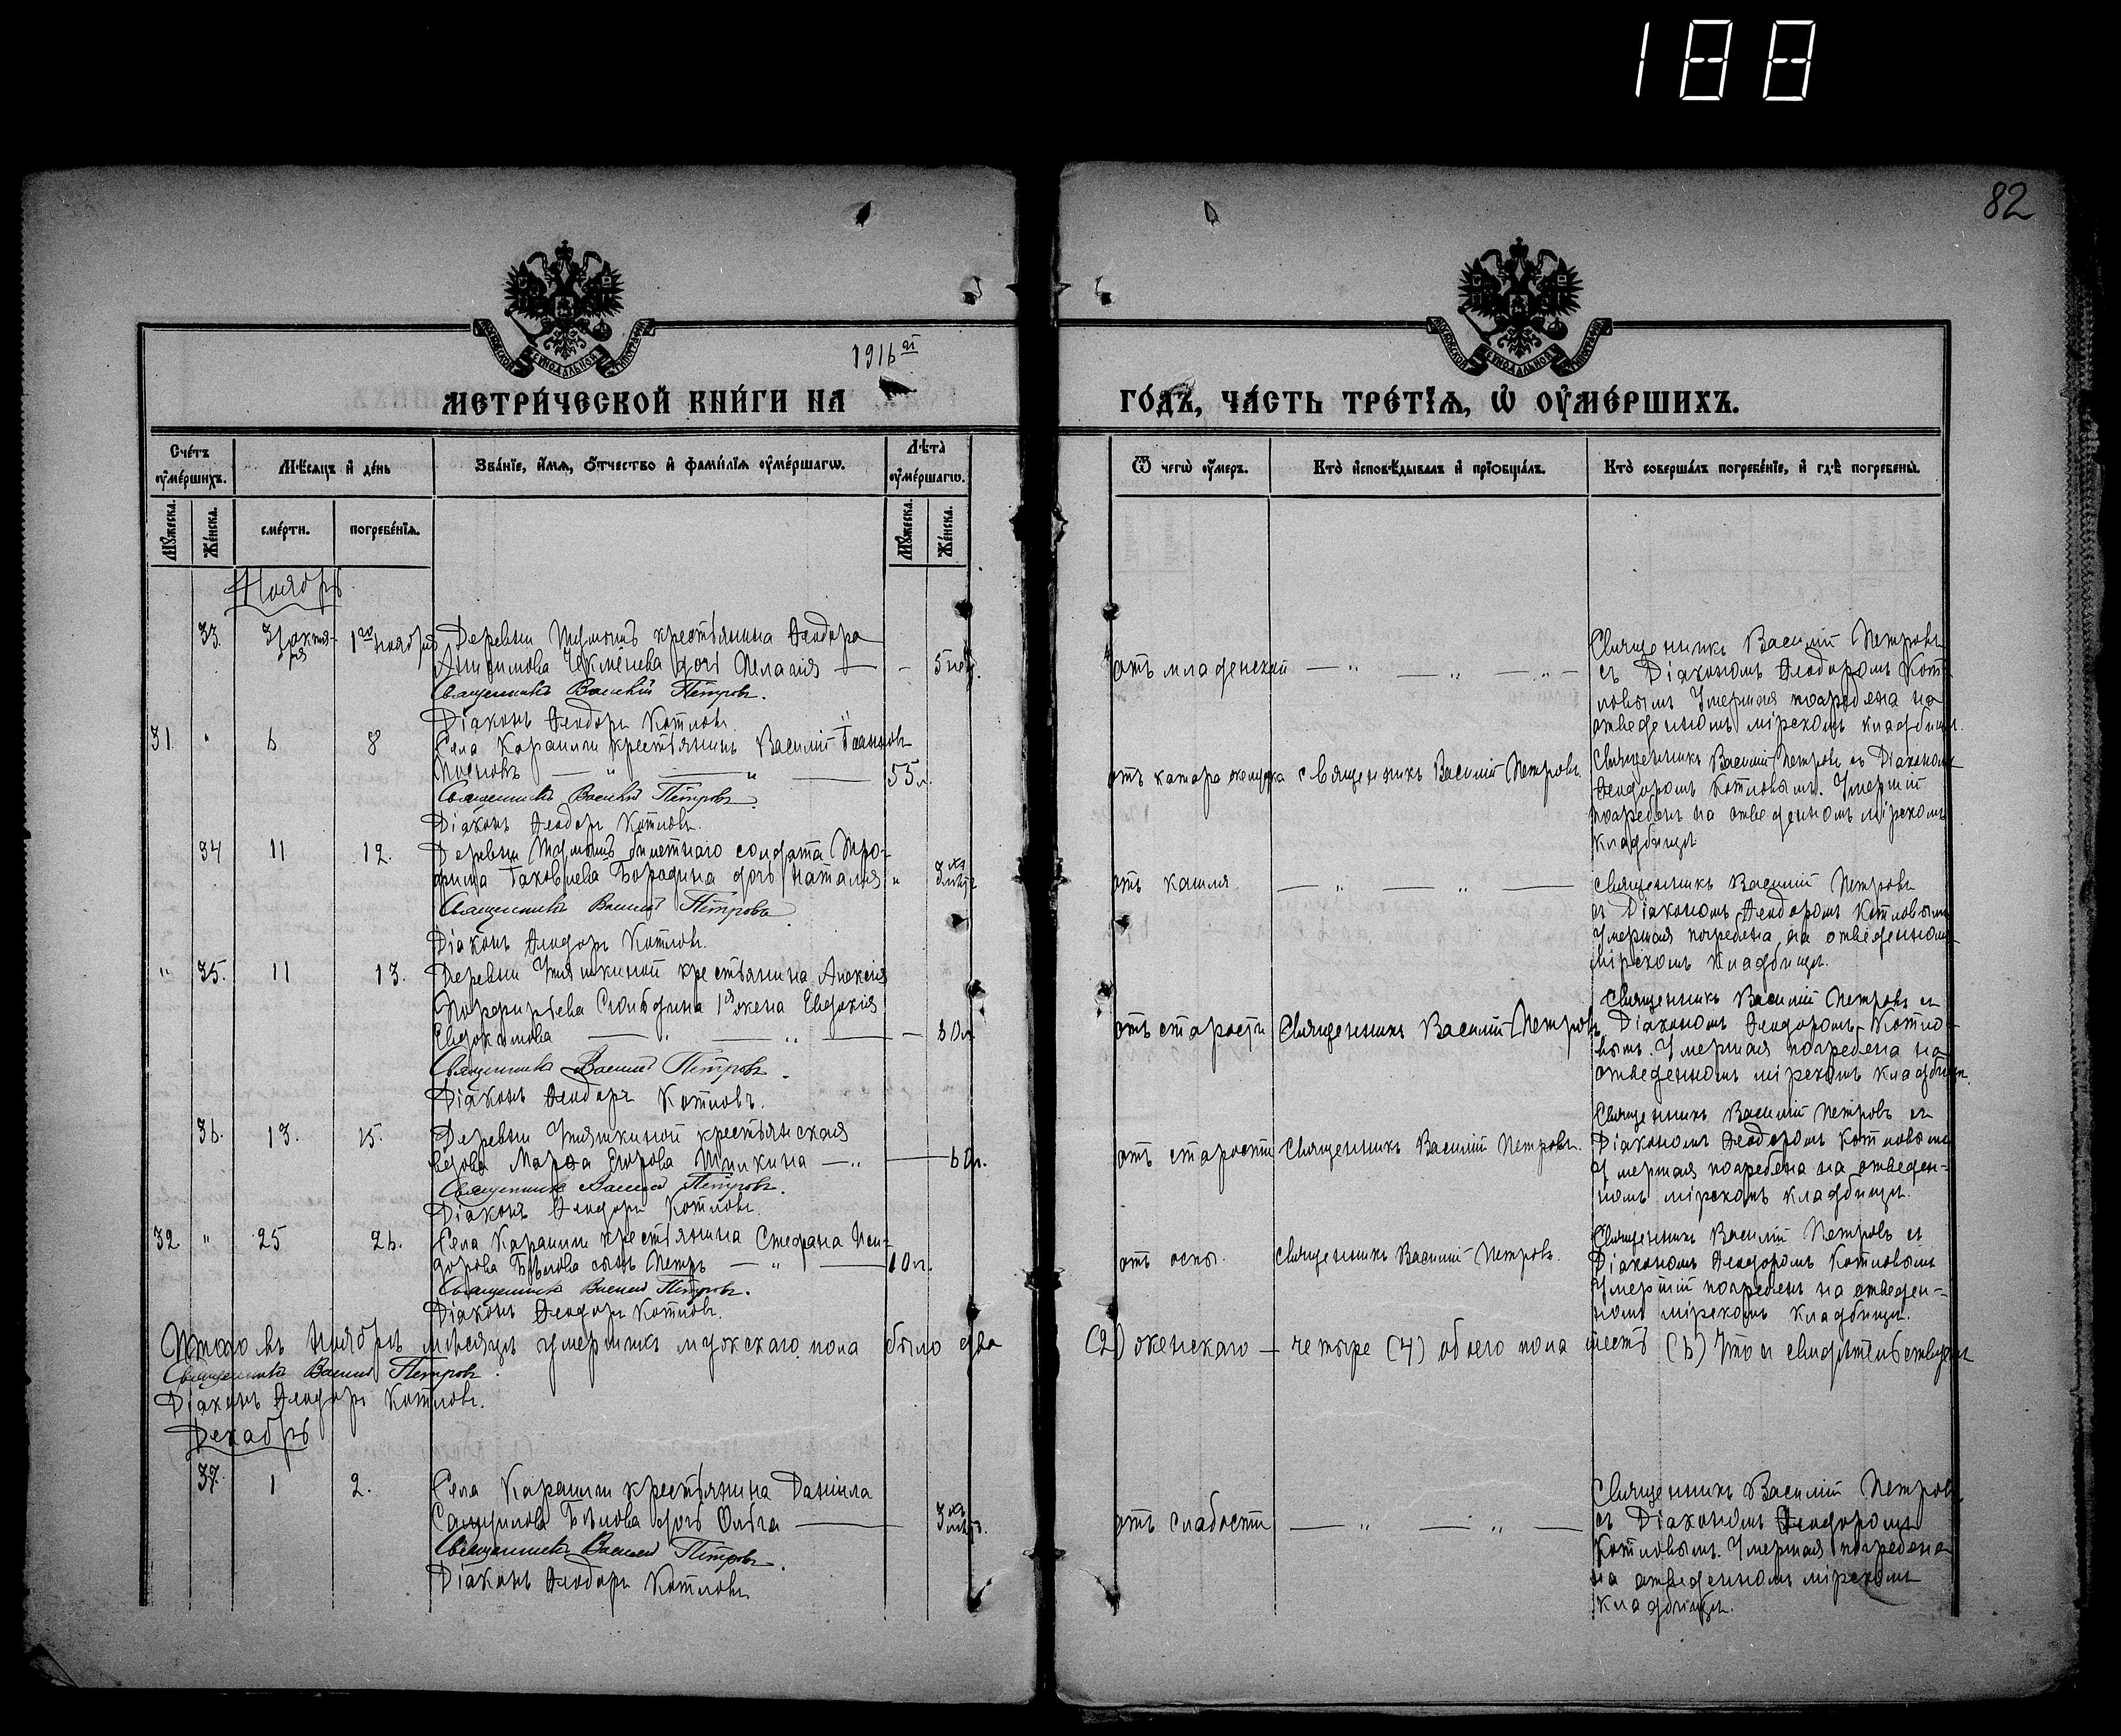 188
82
МОСКОВСКОЙ СУНОДАЛЬНОЙ ТИПОГРАФІИ
МОСКОВСКОЙ СУНОДАЛЬНОЙ ТИПОГРАФІИ
1916й
МЕТРИ́ЧЕСКОЙ КНИ́ГИ НА ГО́ДЪ, ЧА́СТЬ ТРЕ́ТІѦ, Ѡ ОУМЕ́РШИХЪ.
Сче́тъ оуме́ршихъ.
Мѣсяцъ и де́нь
Зва́ніе, и́мя, о́тчество и фами́лія оуме́ршагѡ.
Лѣта̀ оуме́ршагѡ.
Ѿ чегѡ̀ оу́меръ.
Кто̀ исповѣ́дывалъ и пріѡбща́лъ.
Кто̀ соверша́лъ погребе́ніе, и гдѣ̀ погребены̀.
Мꙋ́жеска.
Же́нска.
сме́рти.
погребе́нія.
Мꙋ́жеска.
Же́нска.
Ноябрь
33. 31 октября 1го ноября Деревни крестьянина Ѳеодора
дочь Пелагія — - 5 нед.
Священникъ Василій Петровъ.
Діаконъ Ѳеодоръ Котловъ.
отъ младенской — " — " — " —
Священникъ Василій Петровъ
съ Діакономъ Ѳеодоромъ Кот-
ловымъ. Умершая погребена на
отведенномъ мірскомъ кладбищѣ.
31. " 6 8 Села Карачим крестьянинъ Василій Іоанновъ
— " — " — 55 л.
Священникъ Василій Петровъ.
Діаконъ Ѳеодоръ Котловъ.
отъ катара желудка священникъ Василій Петровъ.
Священникъ Василій Петровъ съ Діакономъ
Ѳеодоромъ Котловымъ. Умершій
погребенъ на отведенномъ мірскомъ
кладбищѣ
34 11 12. Деревни билетнаго солдата Тро-
фима Іаковлева Бородина дочь Наталія " 3хъ мѣс.
Священникъ Василій Петровъ
Діаконъ Ѳеодоръ Котловъ.
отъ кашля. — " — " —
Священникъ Василій Петровъ
съ Діакономъ Ѳеодоромъ Котловымъ
Умершая погребена на отведенномъ
мірскомъ кладбищѣ.
" 35. 11 13. Деревни Утяшкиной крестьянина Алексія
Порфирьева 1я жена Евдокія
Евдокимова — " — " — — 80 л.
Священникъ Василій Петровъ.
Діаконъ Ѳеодоръ Котловъ.
отъ старости Священникъ Василій Петровъ
Священникъ Василій Петровъ съ
Діакономъ Ѳеодоромъ Котло-
вымъ. Умершая погребена на
отведенномъ мірскомъ кладбищѣ.
36. 13. 15. Деревни Утяшкиной крестьянская
вдова Марѳа Егорова Шишкина — " — 60 л.
Священникъ Василій Петровъ.
Діаконъ Ѳеодоръ Котловъ.
отъ старости Священникъ Василій Петровъ.
Священникъ Василій Петровъ съ
Діакономъ Ѳеодоромъ Котловымъ
Умершая погребена на отведен-
номъ мірскомъ кладбищѣ.
32 " 25 26. Села Карачим крестьянина Стефана Иси-
дорова Бѣлова сынъ Петръ — " — 10 л.
Священникъ Василій Петровъ.
Діаконъ Ѳеодоръ Котловъ.
отъ оспы. Священникъ Василій Петровъ.
Священникъ Василій Петровъ съ
Діакономъ Ѳеодоромъ Котловымъ
Умершій погребенъ на отведен-
номъ мірскомъ кладбищѣ.
Итого въ Ноябрѣ мѣсяцѣ умершихъ мужскаго пола было два (2) женскаго — четыре (4) обоего пола шесть (6) Что и свидѣтельствуемъ
Священникъ Василій Петровъ.
Діаконъ Ѳеодоръ Котловъ.
Декабрь
37. 1 2. Села Карачим крестьянина Даніила
Бѣлова дочь Ольга — 3хъ мѣс.
Священникъ Василій Петровъ.
Діаконъ Ѳеодоръ Котловъ
отъ слабости — " — " —
Священникъ Василій Петровъ
съ Діакономъ Ѳеодоромъ
Котловымъ. Умершая погребена
на отведенномъ мірскомъ
кладбищѣ.